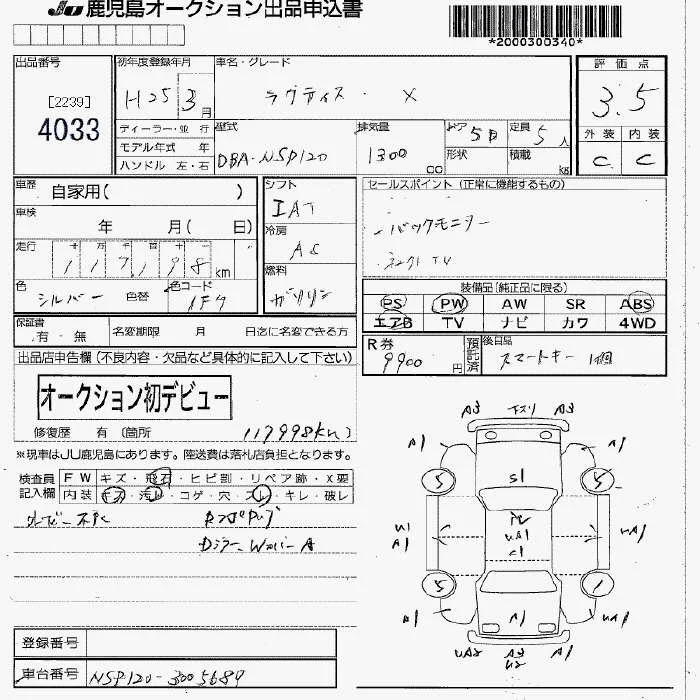 JU 鹿児島オークション出品申込書
*2000300340*
出品番号
[2239]
4033
初年度登録年月
H25 3月
ディーラー・並 行
モデル年式 年
ハンドル 左・右
車名・グレード
ラクティス・X
型式
DBA-NSP120
排気量
1300 cc
ドア 5D
形状
定員 5人
積載 kg
評価点
3.5
外装 内装
C C
車歴
自家用( )
車検
年 月( 日)
走行
十 万 千 百 十
km
色
シルバー
色替
色コード
1F7
シフト
IAT
冷房
AC
燃料
ガソリン
セールスポイント (正常に機能するもの)
バックモニター
装備品 (純正品に限る)
PS PW AW SR ABS
エアB TV ナビ カワ 4WD
保証書
有・無
名変期限 月 日迄に名変できる方
R券
9900円
預託済
後日品
スマートキー 1個
出品店申告欄 (不良内容・欠品など具体的に記入して下さい)
オークション初デビュー
修復歴 有 (箇所
117998km)
※現車はJU鹿児島にあります。陸送費は落札店負担となります。
検査員記入欄
FW キズ・飛石・ヒビ割・リペア跡・X要
内装 キズ・汚れ・コゲ・穴・スレ・キレ・破レ
A3 下スリ A3
A1 A1
S1
5 5
U1 A1
UA1
C1
UA1
5 1
A1 A1 A1
UA2 A3 U2 A1
登録番号
車台番号
NSP120-3005689